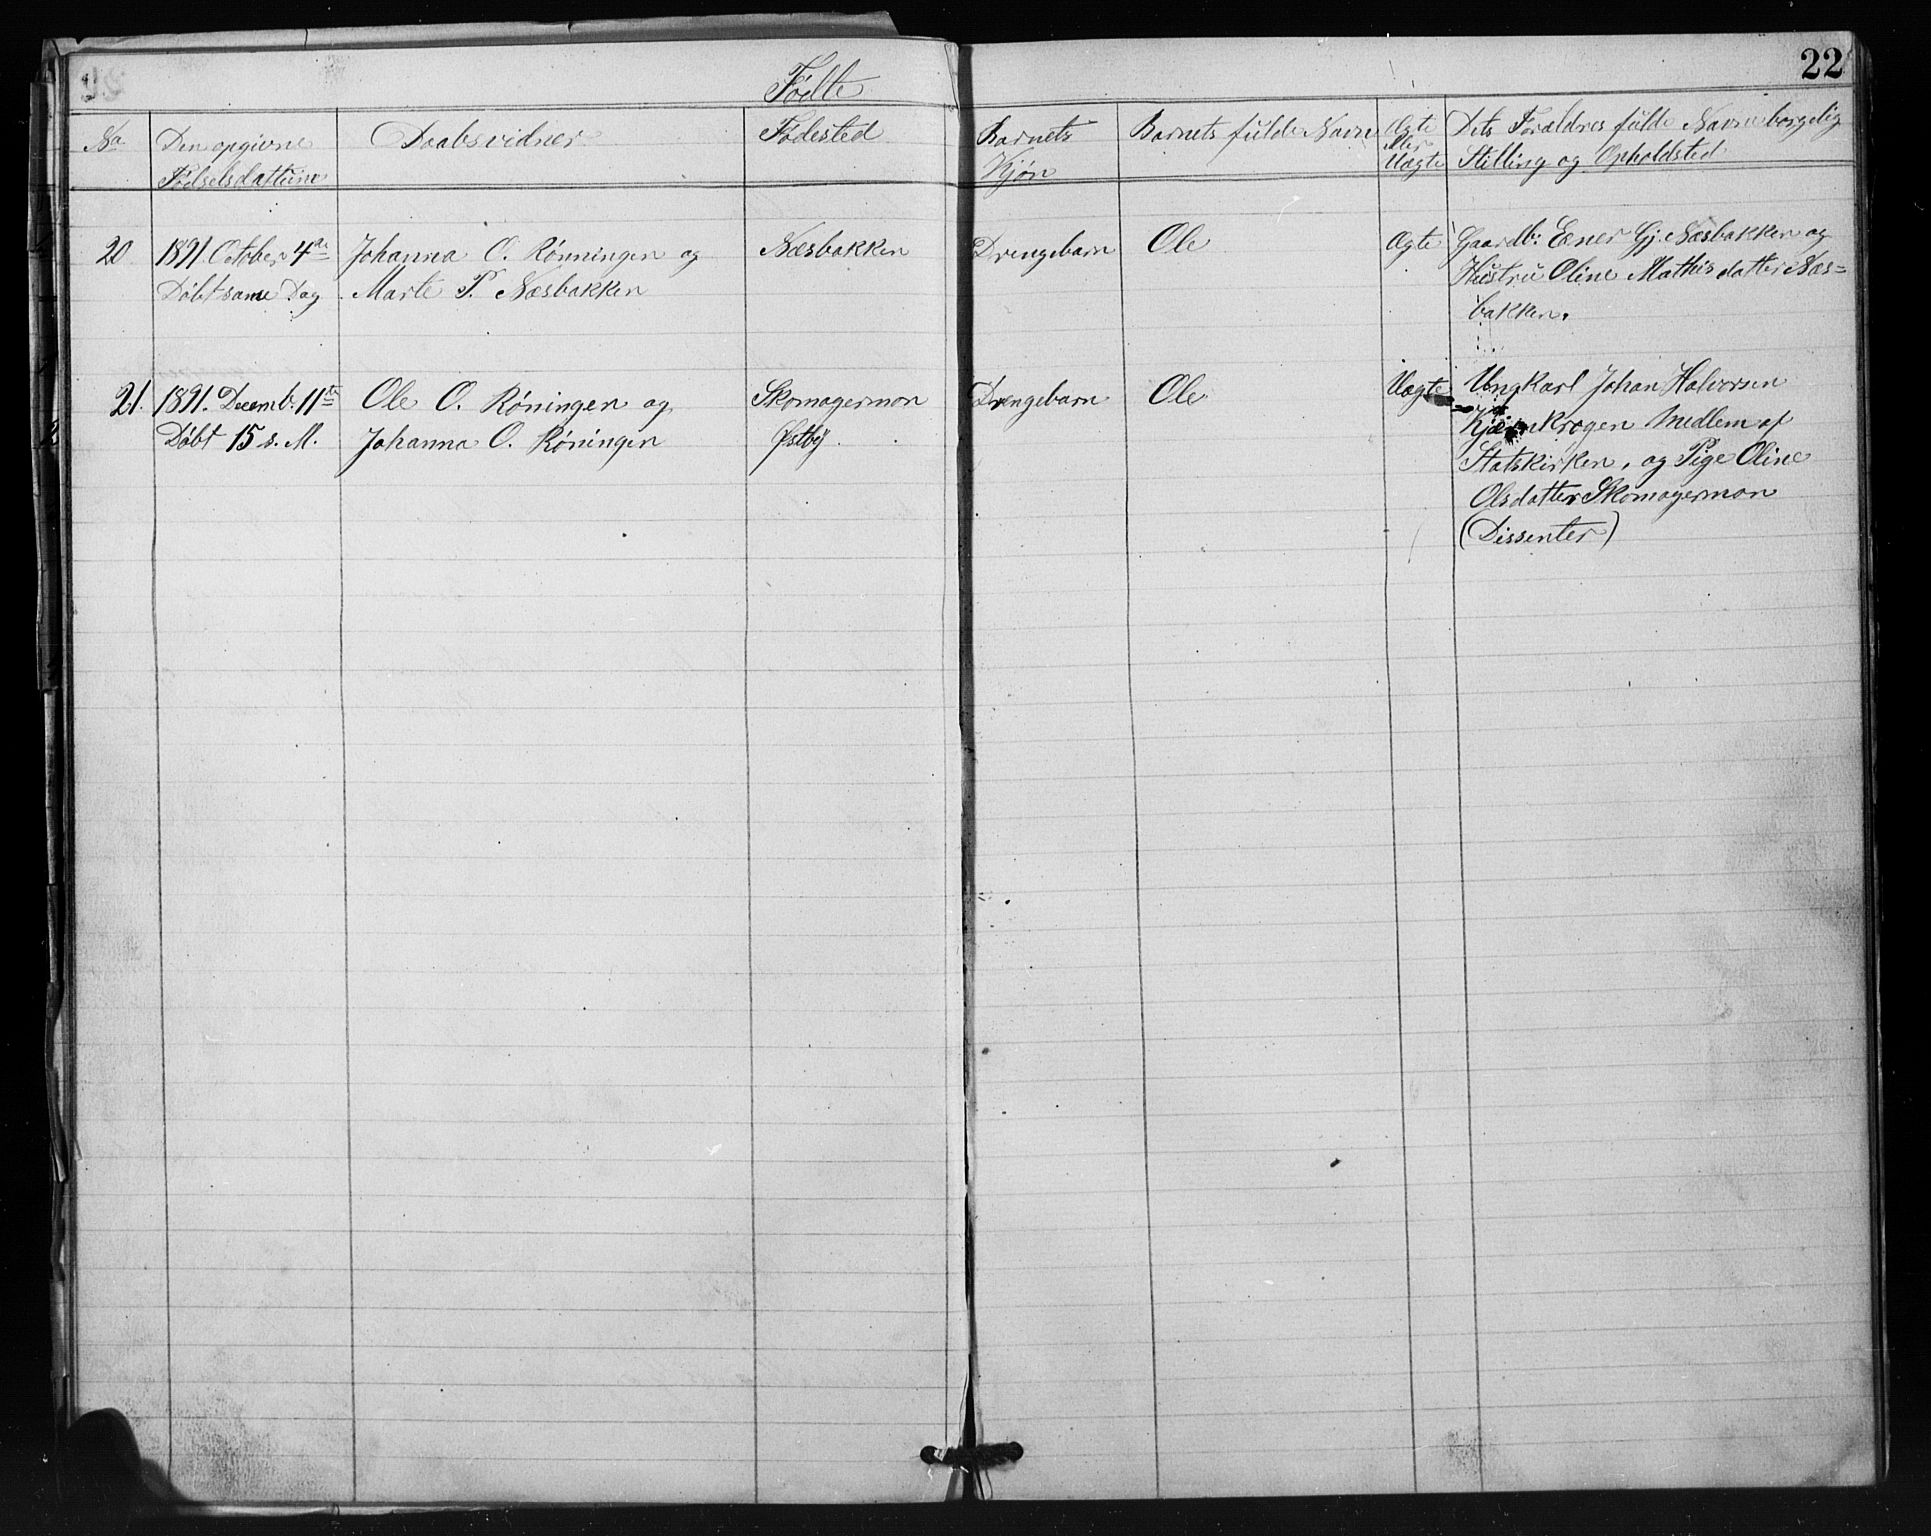 22
Fødte
No
Den opgivne
Fødselsdattum
Daabsvidner
Fødested
Barnets
Kjøn
Barnets fulde Navn
Ægte
eller
Uægte
Dets Forældres fulde Navne borgelig
Stilling og Opholdsted
20
1891. October 4de
Døbt same Dag
Johanna O. Rønningen og
Marte P. Næsbakken
Næsbakken
Drengebarn
Ole
Ægte
Gaardb: Ener Gj. Næsbakken og
Hustru Oline Mathisdatter Næs=
bakken.
21.
1891. Decemb. 11te
Døbt 15 s. M.
Ole O. Røningen og
Johanna O. Røningen
Skomagermon
Østby
Drengebarn
Ole
Uægte
Ungkarl Johan Halvorsen
Kjærnkrogen Medlem af
Statskirken, og Pige Oline
Olsdatter Skomagermon
(Dissenter)